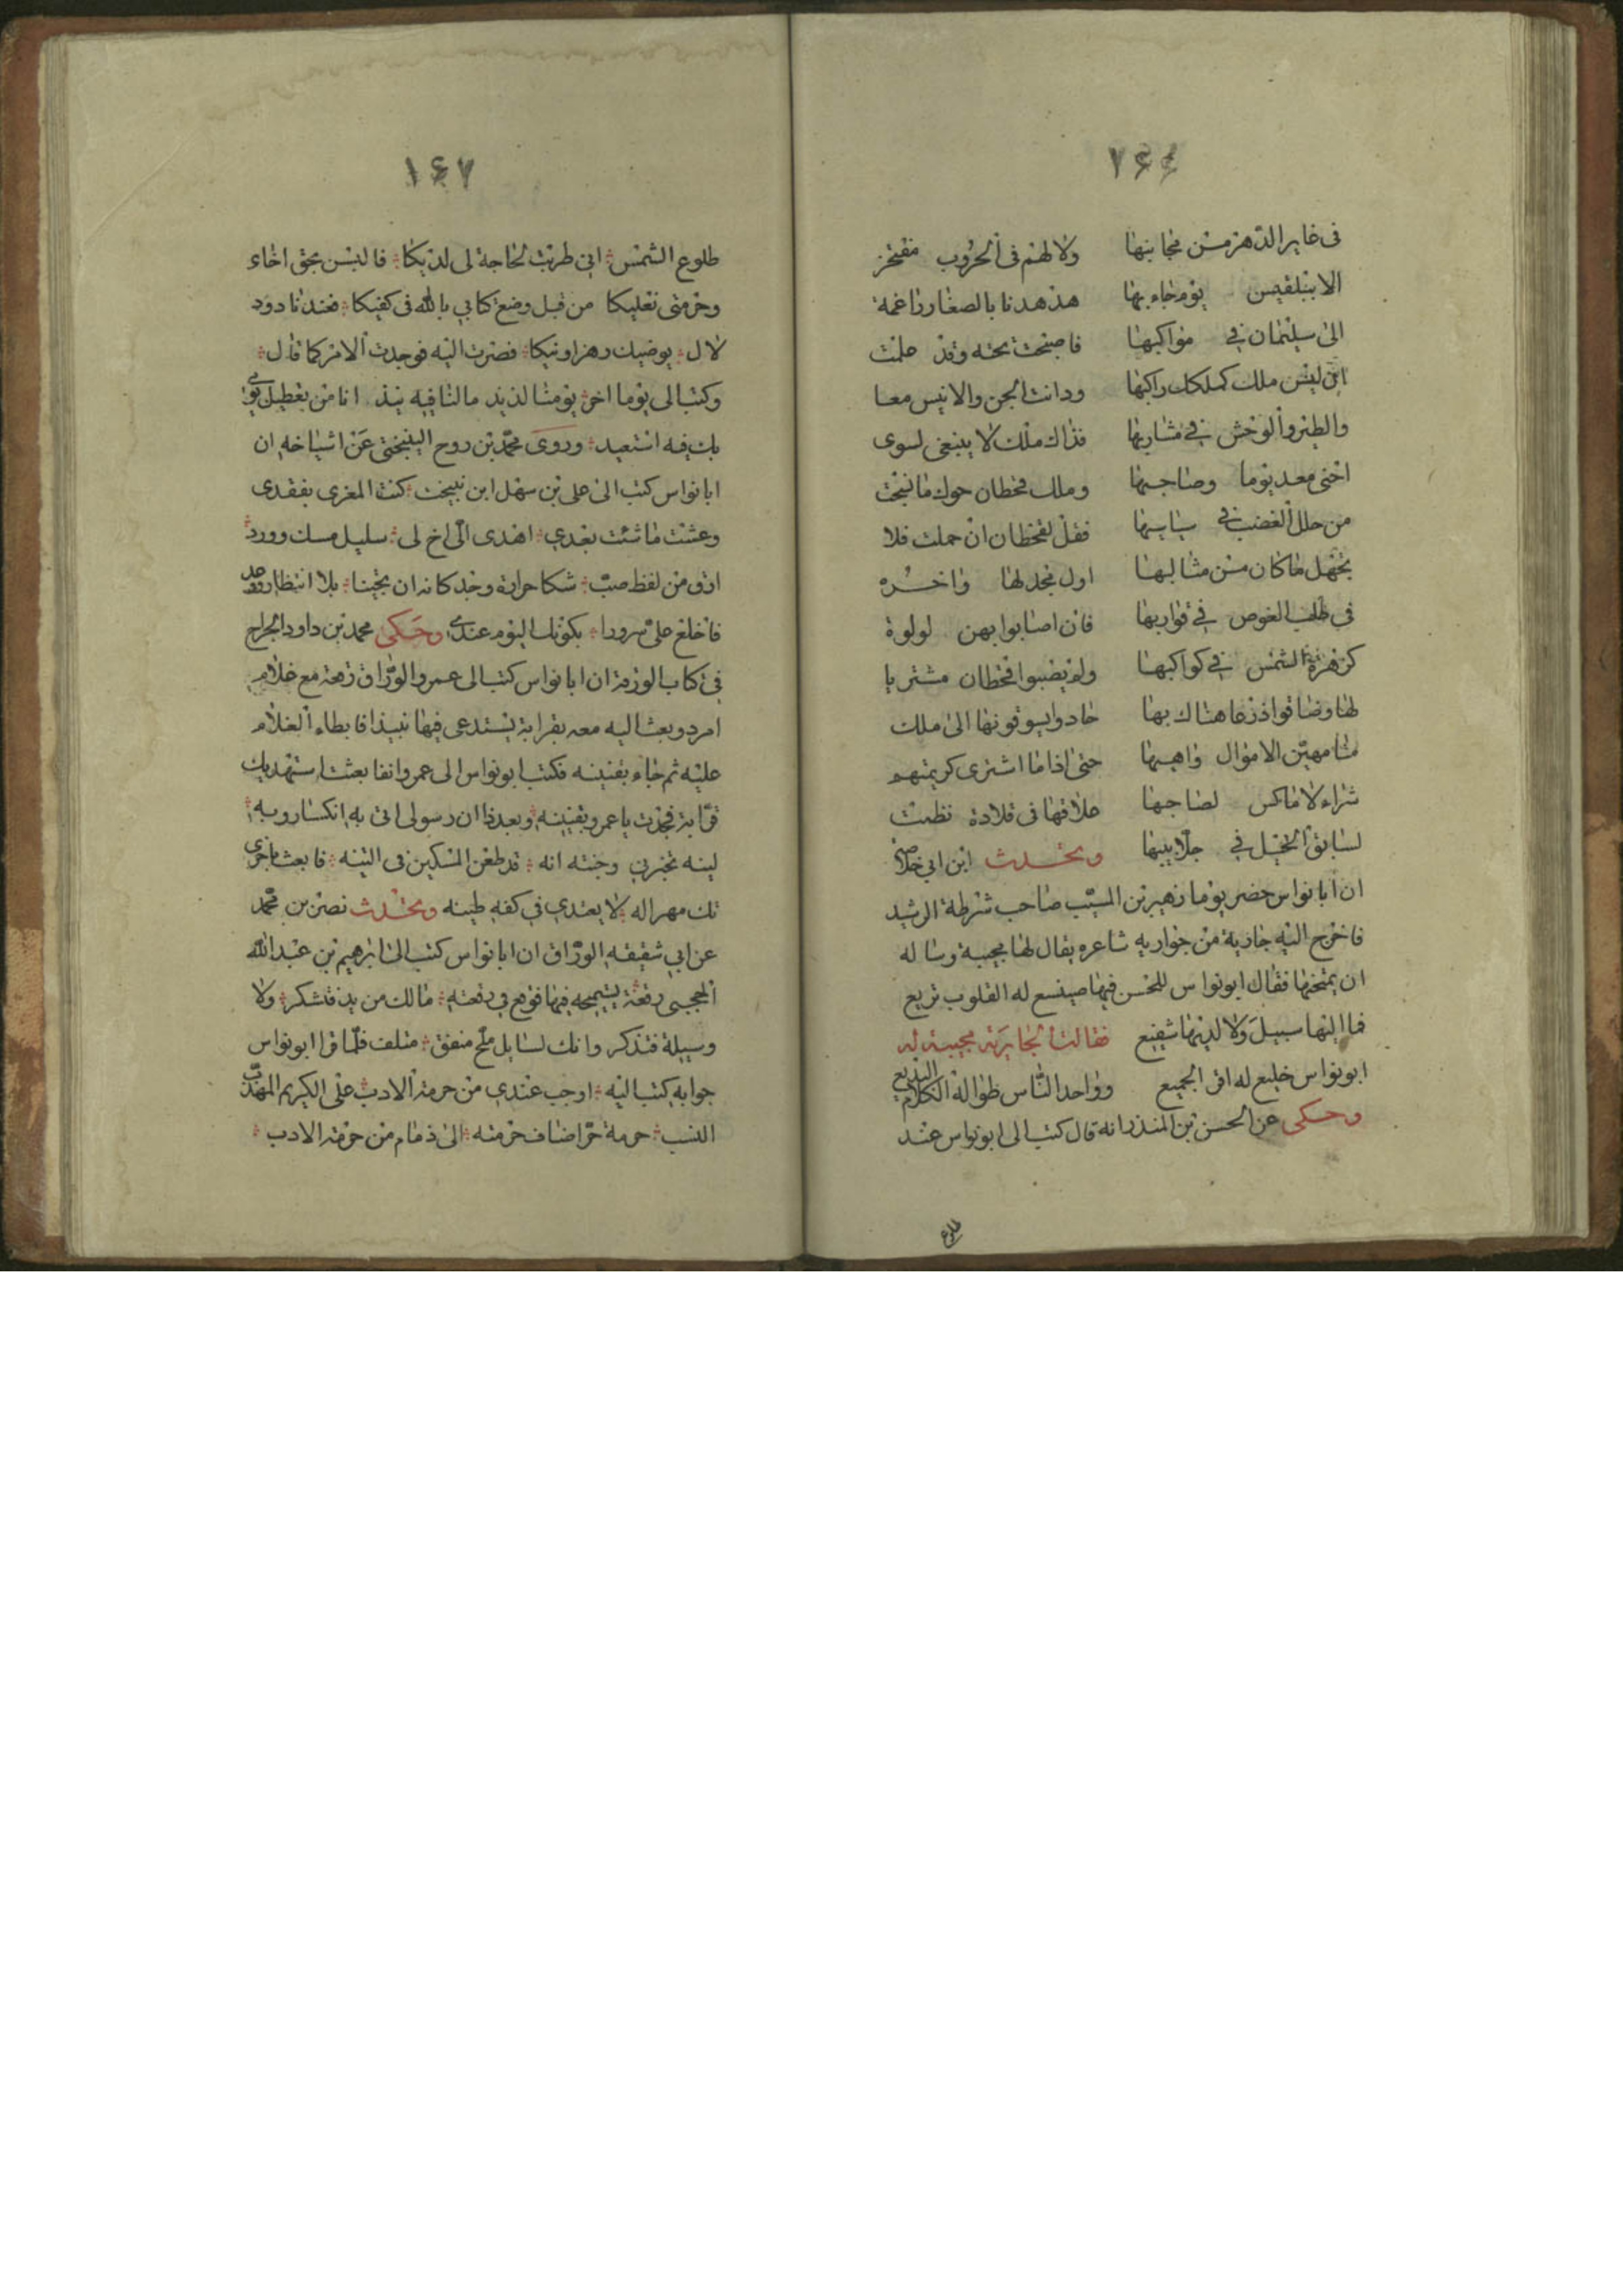 ٢٤٤
فى غابر الدهر من عجايبها ولا لهم فى الحروب مفتخر
الا ببلقيس يوم جاء بها هدهدنا بالصغار راغمة
الى سليمان فى مواكبها فاصبحت تحته وقد علمت
ان ليس ملك كملك راكبها ودانت الجن والانس معا
والطير والوحش فى مشاربها فذاك ملك لا ينبغى لسوى
اخى معد يوما وصاحبها وملك قحطان حوك ما نسجت
من حلل العضب فى سباسبها فقل لقحطان ان حملت فلا
تجهل ما كان من مثالبها اول مجد لها واخره
فى طلب الغوص فى قواربها فان اصابوا بهن لولوة
كزهرة الشمس فى كواكبها ولم يصيبوا بقحطان مشتريا
لها وضاقوا ذرعا هناك بها حادوا يسوقونها الى ملك
منا مهين الاموال واهبها حتى اذا ما اشترى كريمتهم
شراء لا ماكس لصاحبها علاقها فى قلادة نظمت
لسابق الخيل فى جلاببها وتحدث ابن ابى خلاصة
ان ابا نواس حضر يوما زهير بن المسيب صاحب شرطة الرشيد
فاخرج اليه جارية من جواريه شاعره يقال لها مجيبة وساله
ان يمتحنها فقال ابو نواس للحسن فيها صنيع له القلوب تريع
فما اليها سبيل ولا لديها شفيع فقالت الجارية مجيبة له
ابو نواس خليع له اقر الجميع وواحد الناس طوا له الكلام البديع
وحكى عن الحسن بن المنذر انه قال كتب الى ابو نواس عند
طلوع
١٤٧
طلوع الشمس انى طربت لحاجة لى لديكا فالبسن بحق اخاء
وحرمتى نعليكا من قبل وضع كتابى بالله فى كفيكا فعندنا دود
لال يوضيك وهزاونيكا فصرت اليه فوجدت الامر كما قال
وكتب الى يوما اخر يومنا لذيذ ما لنا فيه نبيذ انا من تعطيل يومى
بك فيه استعيذ وروى محمد بن روح النيبختى عن اشياخه ان
ابا نواس كتب الى على بن سهل ابن نيبخت كنت المعزى بفقدى
وعشت ما شئت بعدى اهدى الى اخ لى سليل مسك وورد
ارق من لفظ صب شكا حرارة وجد كانه ان يجينا بلا انتظار وعد
فاخلع على سرورا بكونك اليوم عندى وحكى محمد بن داود الجراح
فى كتاب الورقة ان ابا نواس كتب الى عمرو الوراق رقعة مع غلام
امرد وبعث اليه معه بقرابة يستدعى فيها نبيذا فابطاء الغلام
عليه ثم جاء بقنينه فكتب ابو نواس الى عمرو انفا بعثت استهديك
قرابة فجدت يا عمرو بقنينه وبعد ذا ان رسولى اتى به انكسار وبه
لينه تخبرنى وجنته انه قد طعن المسكين فى التينه فابعث باخرى
تك مهرا له لا يعتدى فى كفه طينه وتحدث نصر بن محمد
عن ابى شقيقه الوراق ان ابا نواس كتب الى ابرهيم بن عبد الله
الحجبى رقعة يستميحه فيها فوقع فى رقعته مالك من يد فتشكر ولا
وسيلة فتذكر وانك لسايل ملح منفق متلف فلما قرا ابو نواس
جوابه كتب اليه اوجب عندى من حرمة الادب على الكريم المهذب
النسب حرمة حر اضاف حرمته الى ذمام من حرمة الادب